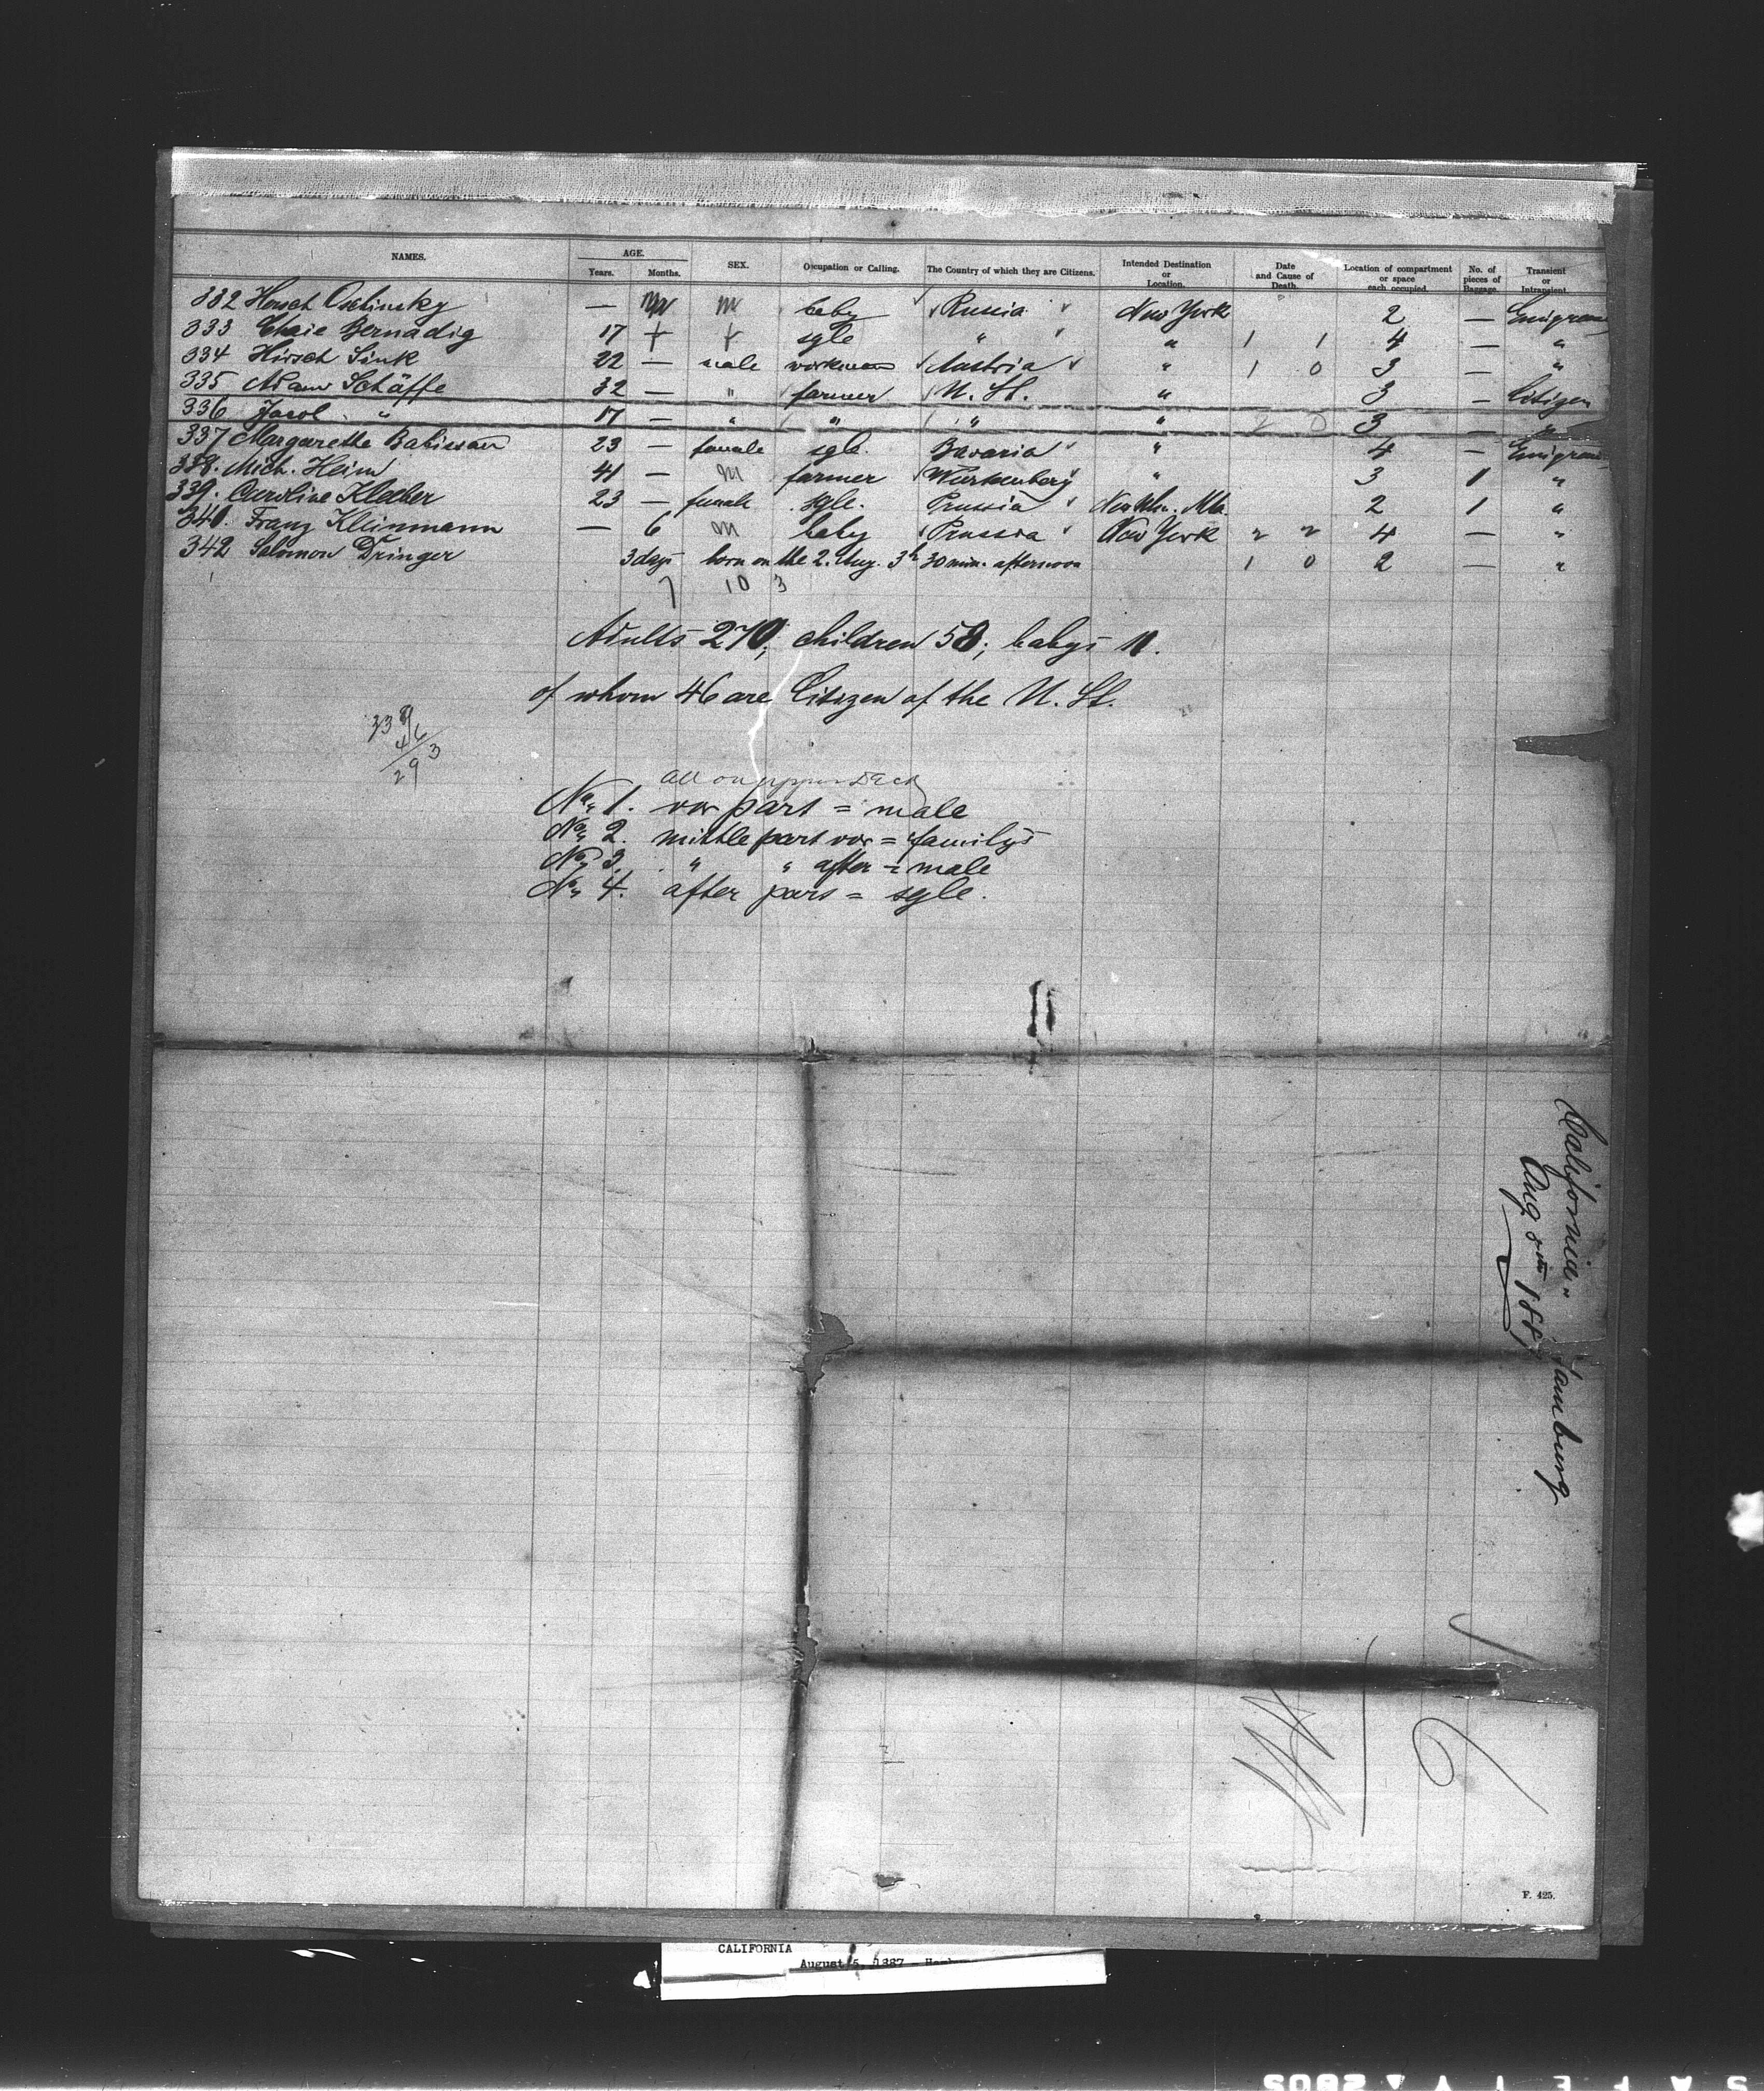 NAMES. AGE. Years. Months. SEX. Occupation or Calling. The Country of which they are Citizens. Intended Destination or Location. Date and Cause of Death. Location of compartment or space each occupied. No. of pieces of Baggage. Transient or Intransient.
332 Hersch Oschinsky — m baby Russia New York 2 — Emigrant
333 Chaie Bernadig 17 + + sgle " " 1 1 4 — "
334 Hirsch Sink 22 — male workman Austria " 1 0 3 — "
335 Adam Schäffe 32 — " farmer U. St. " 3 — Citizen
336 Jacob " 17 — " " " " 3 — "
337 Margarethe Babissan 23 — female sgle. Bavaria " 4 — Emigrant
338. Mich. Heim 41 — m farmer Würtenberg " 3 1 "
339. Caroline Kleeber 23 — female sgle. Prussia 2 1 "
340. Franz Kleinmann — 6 m baby Prussia New York 2 2 4 — "
342 Salomon Dringer 3 days born on the 2. Aug. 3h 30 min. afternoon 1 0 2 — "
7 10 3
Adults 270; children 58; babys 11.
of whom 46 are Citizen of the U. St.
339
46
293
All on upper Deck
No. 1. vor part = male
No. 2. mittle part vor = familys
No. 3. " " after = male
No. 4. after part = sgle.
California" Hamburg
Aug 5th 1887
F. 425.
CALIFORNIA
August 5, 1887 -
SAFETY 2805